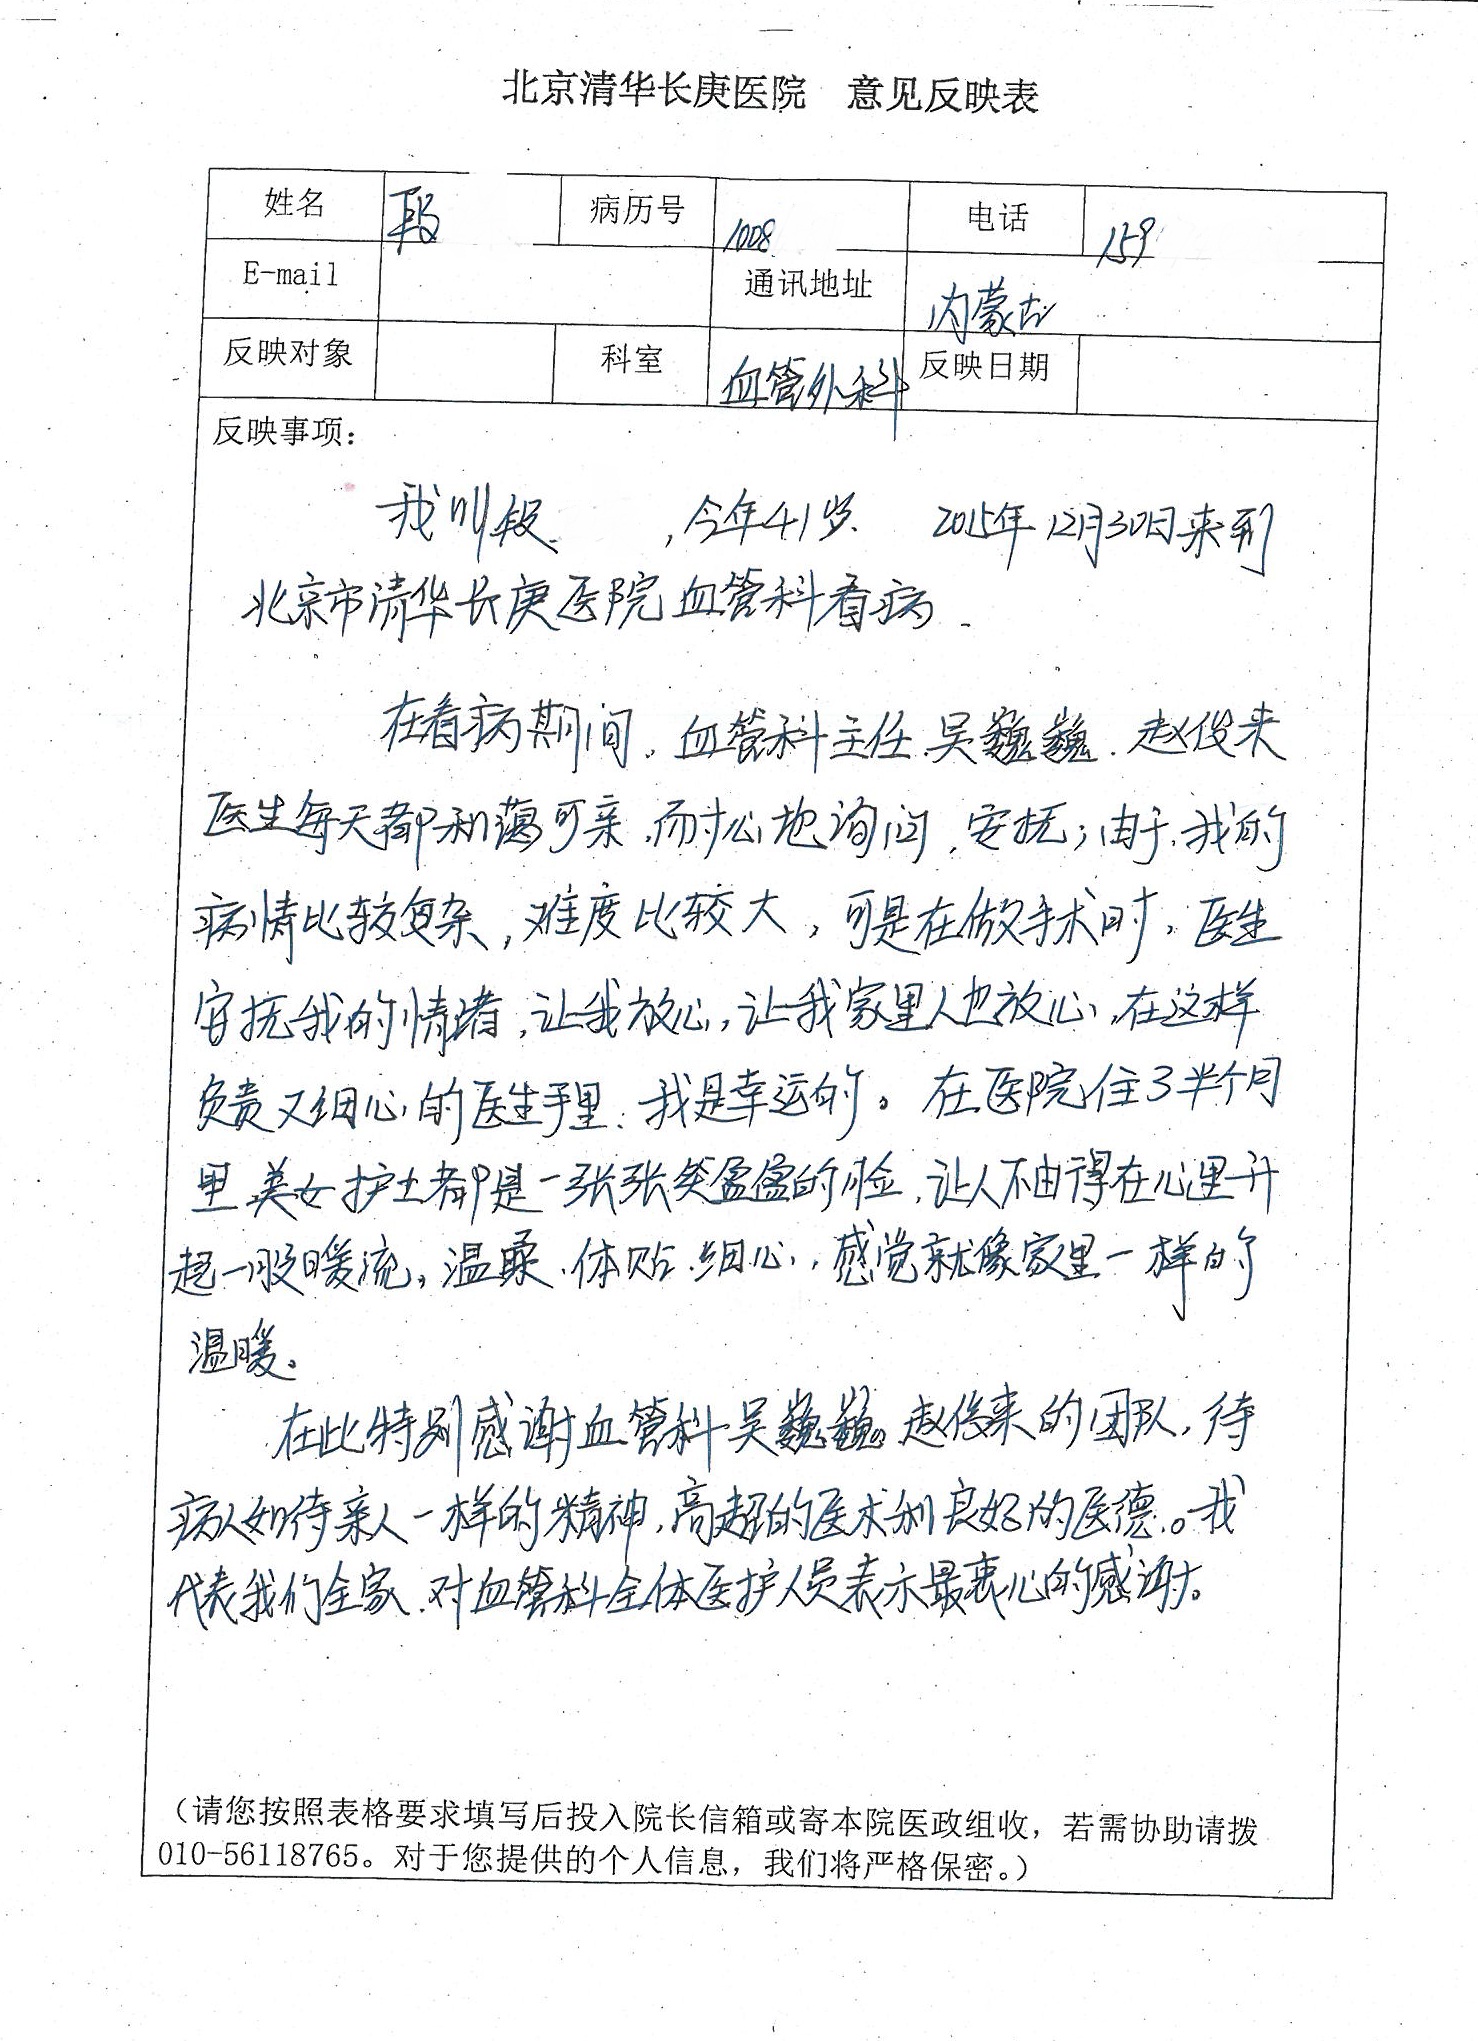 北京清华长庚医院 意见反映表
姓名 段 病历号 1008 电话 159
E-mail 通讯地址 内蒙古
反映对象 科室 血管外科 反映日期
反映事项：
我叫段 ，今年41岁. 2015年12月30日来到
北京市清华长庚医院血管科看病.
在看病期间，血管科主任.吴巍巍.赵俊来
医生每天都和蔼可亲，耐心地询问，安抚；由于，我的
病情比较复杂，难度比较大，可是在做手术时，医生
安抚我的情绪，让我放心，让我家里人也放心，在这样
负责又细心的医生手里，我是幸运的。在医院住3半个月
里美女护士都是一张张笑盈盈的脸，让人不由得在心里升
起一股暖流，温柔、体贴、细心，感觉就像家里一样的
温暖。
在此特别感谢血管科吴巍巍。赵俊来的团队，待
病人如待亲人一样的精神，高超的医术和良好的医德。我
代表我们全家，对血管科全体医护人员表示最衷心的感谢。
（请您按照表格要求填写后投入院长信箱或寄本院医政组收，若需协助请拨
010-56118765。对于您提供的个人信息，我们将严格保密。）